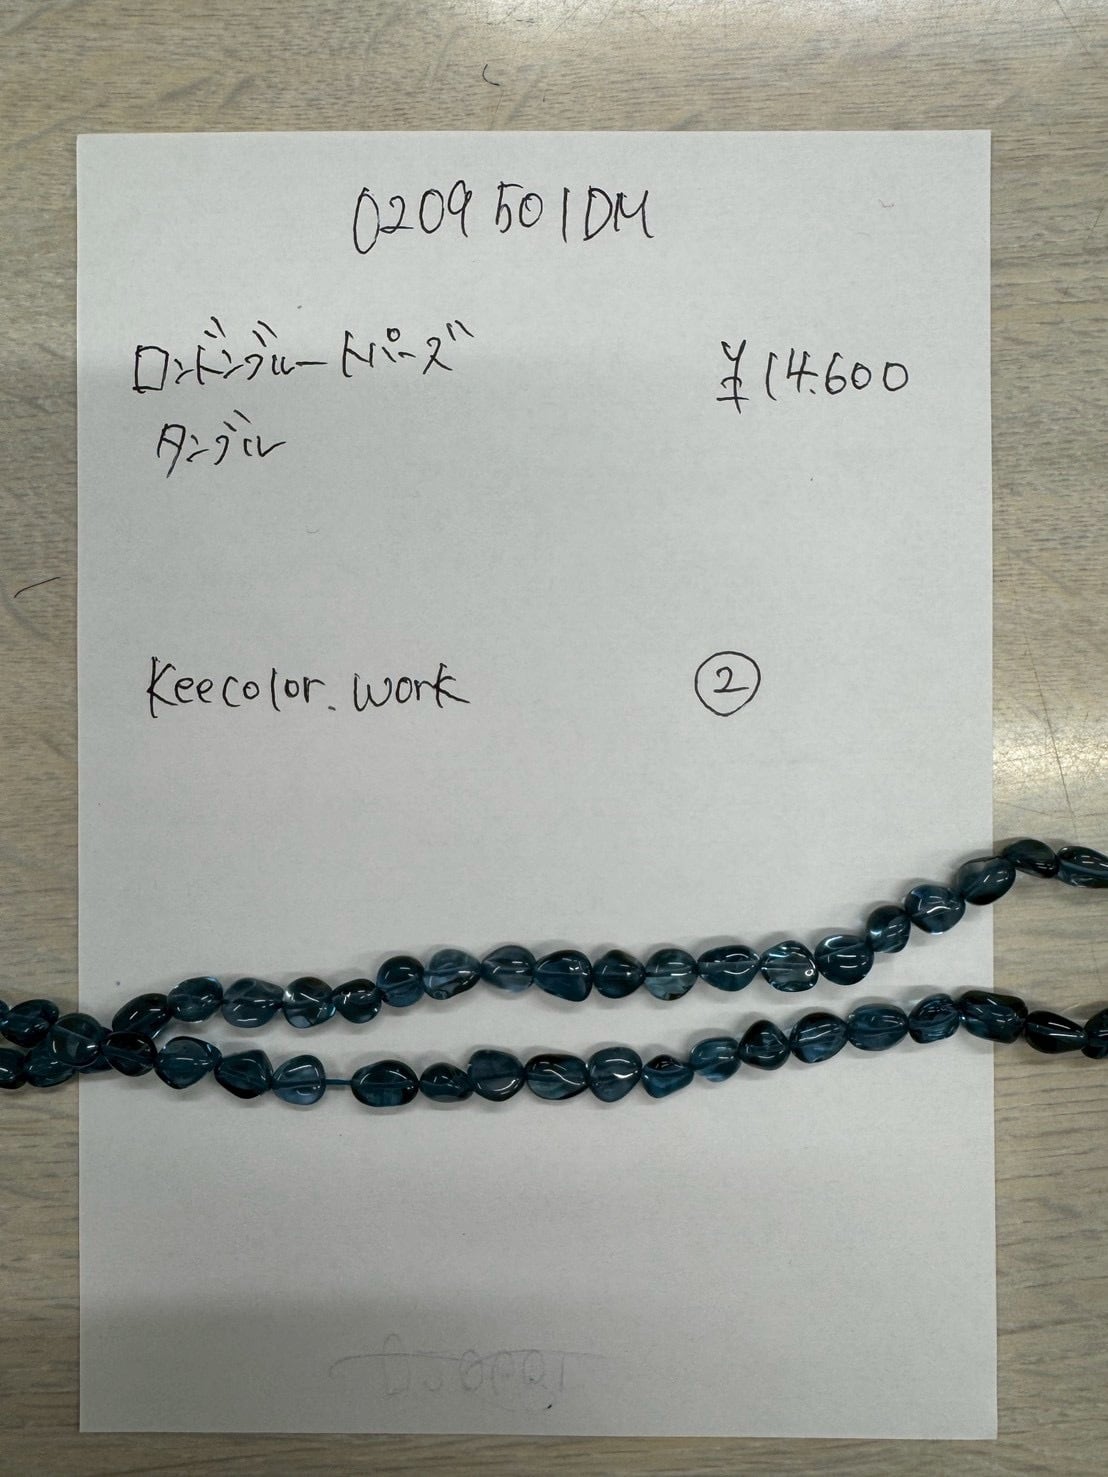 0209 501DM
ロンドンブルートパーズ ¥14.600
タンブル
Keecolor.work ②